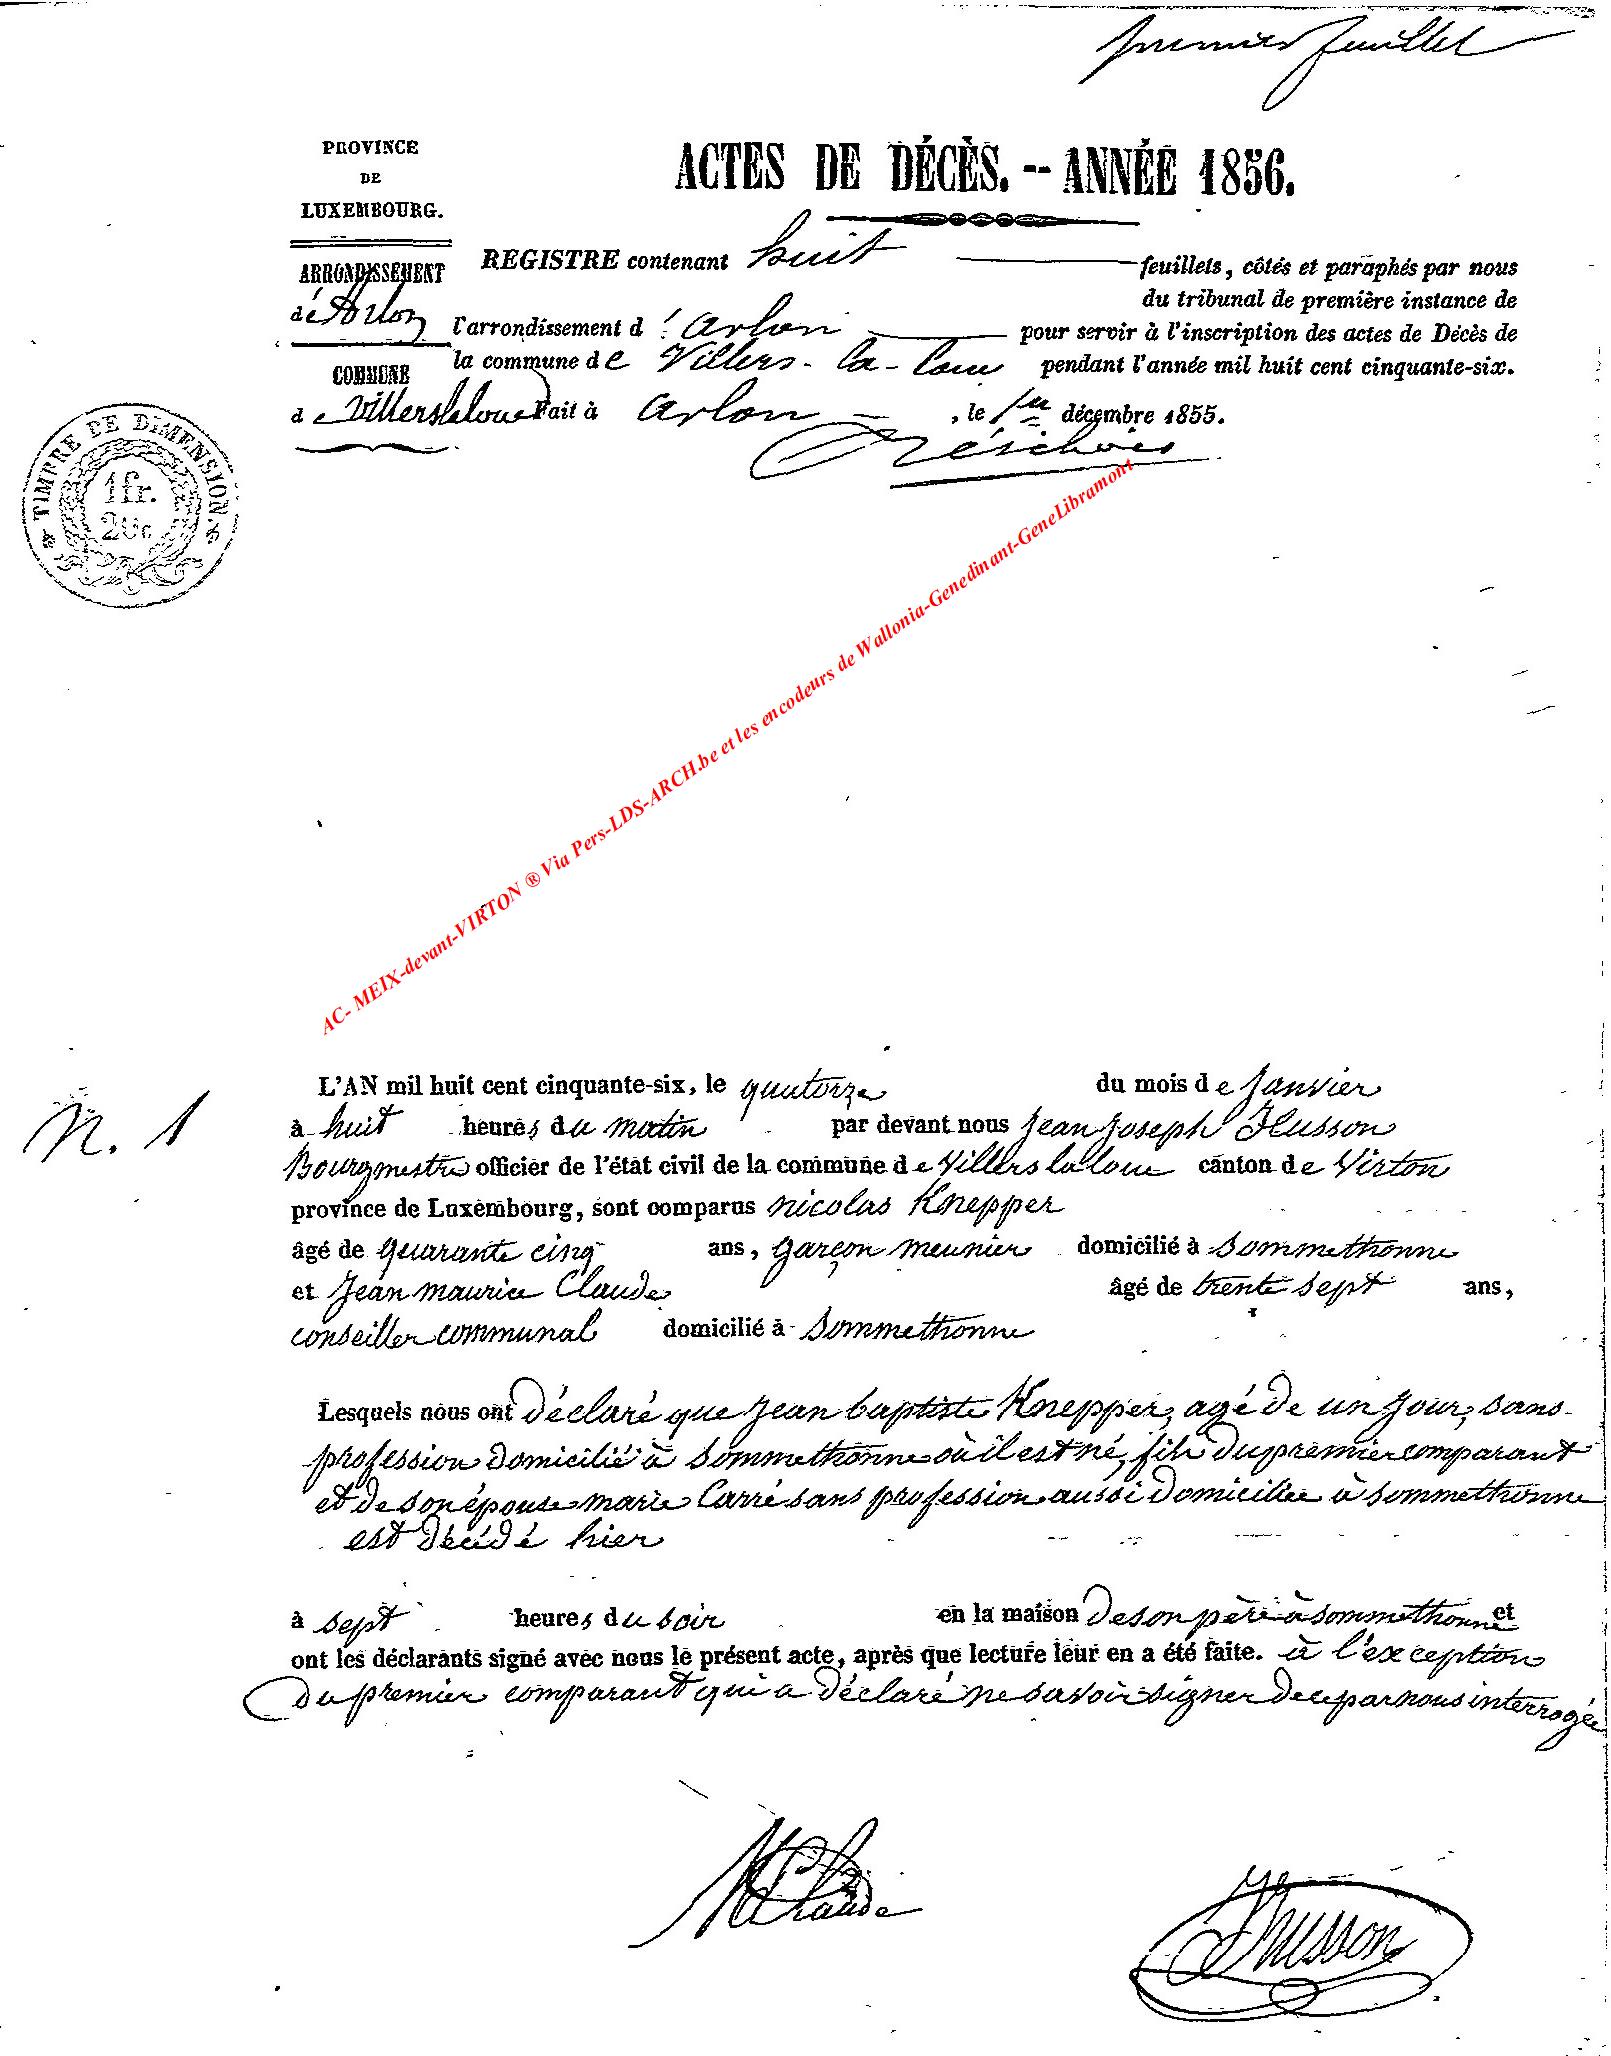 premier feuillet
PROVINCE
DE
LUXEMBOURG.
ACTES DE DÉCÈS. -- ANNÉE 1856.
ARRONDISSEMENT
d'Arlon
COMMUNE
de Villers la loue
REGISTRE contenant huit feuillets, côtés et paraphés par nous
du tribunal de première instance de
l'arrondissement d'Arlon pour servir à l'inscription des actes de Décès de
la commune de Villers-la-loue pendant l'année mil huit cent cinquante-six.
Fait à Arlon, le 1er décembre 1855.
TIMBRE DE DIMENSION
1fr.
20c
AC- MEIX-devant-VIRTON ® Via Pers-LDS-ARCH.be et les encodeurs de Wallonia-Genedinant-GeneLibramont
N. 1
L'AN mil huit cent cinquante-six, le quatorze du mois de Janvier
à huit heures du matin par devant nous Jean Joseph Husson
Bourgmestre officier de l'état civil de la commune de Villers la loue canton de Virton
province de Luxembourg, sont comparus nicolas Knepper
âgé de quarante cinq ans, garçon meunier domicilié à sommethonne
et Jean maurice Claude âgé de trente sept ans,
conseiller communal domicilié à sommethonne
Lesquels nous ont déclaré que Jean baptiste Knepper, agé de un Jour, sans
profession domicilié à sommethonne où il est né, fils du premier comparant
et de son épouse marie Carré sans profession aussi domiciliée à sommethonne
est décédé hier
à sept heures du soir en la maison de son père à sommethonne et
ont les déclarants signé avec nous le présent acte, après que lecture leur en a été faite. à l'exception
du premier comparant qui a déclaré ne savoir signer de ce par nous interrogée
M Claude
JHusson